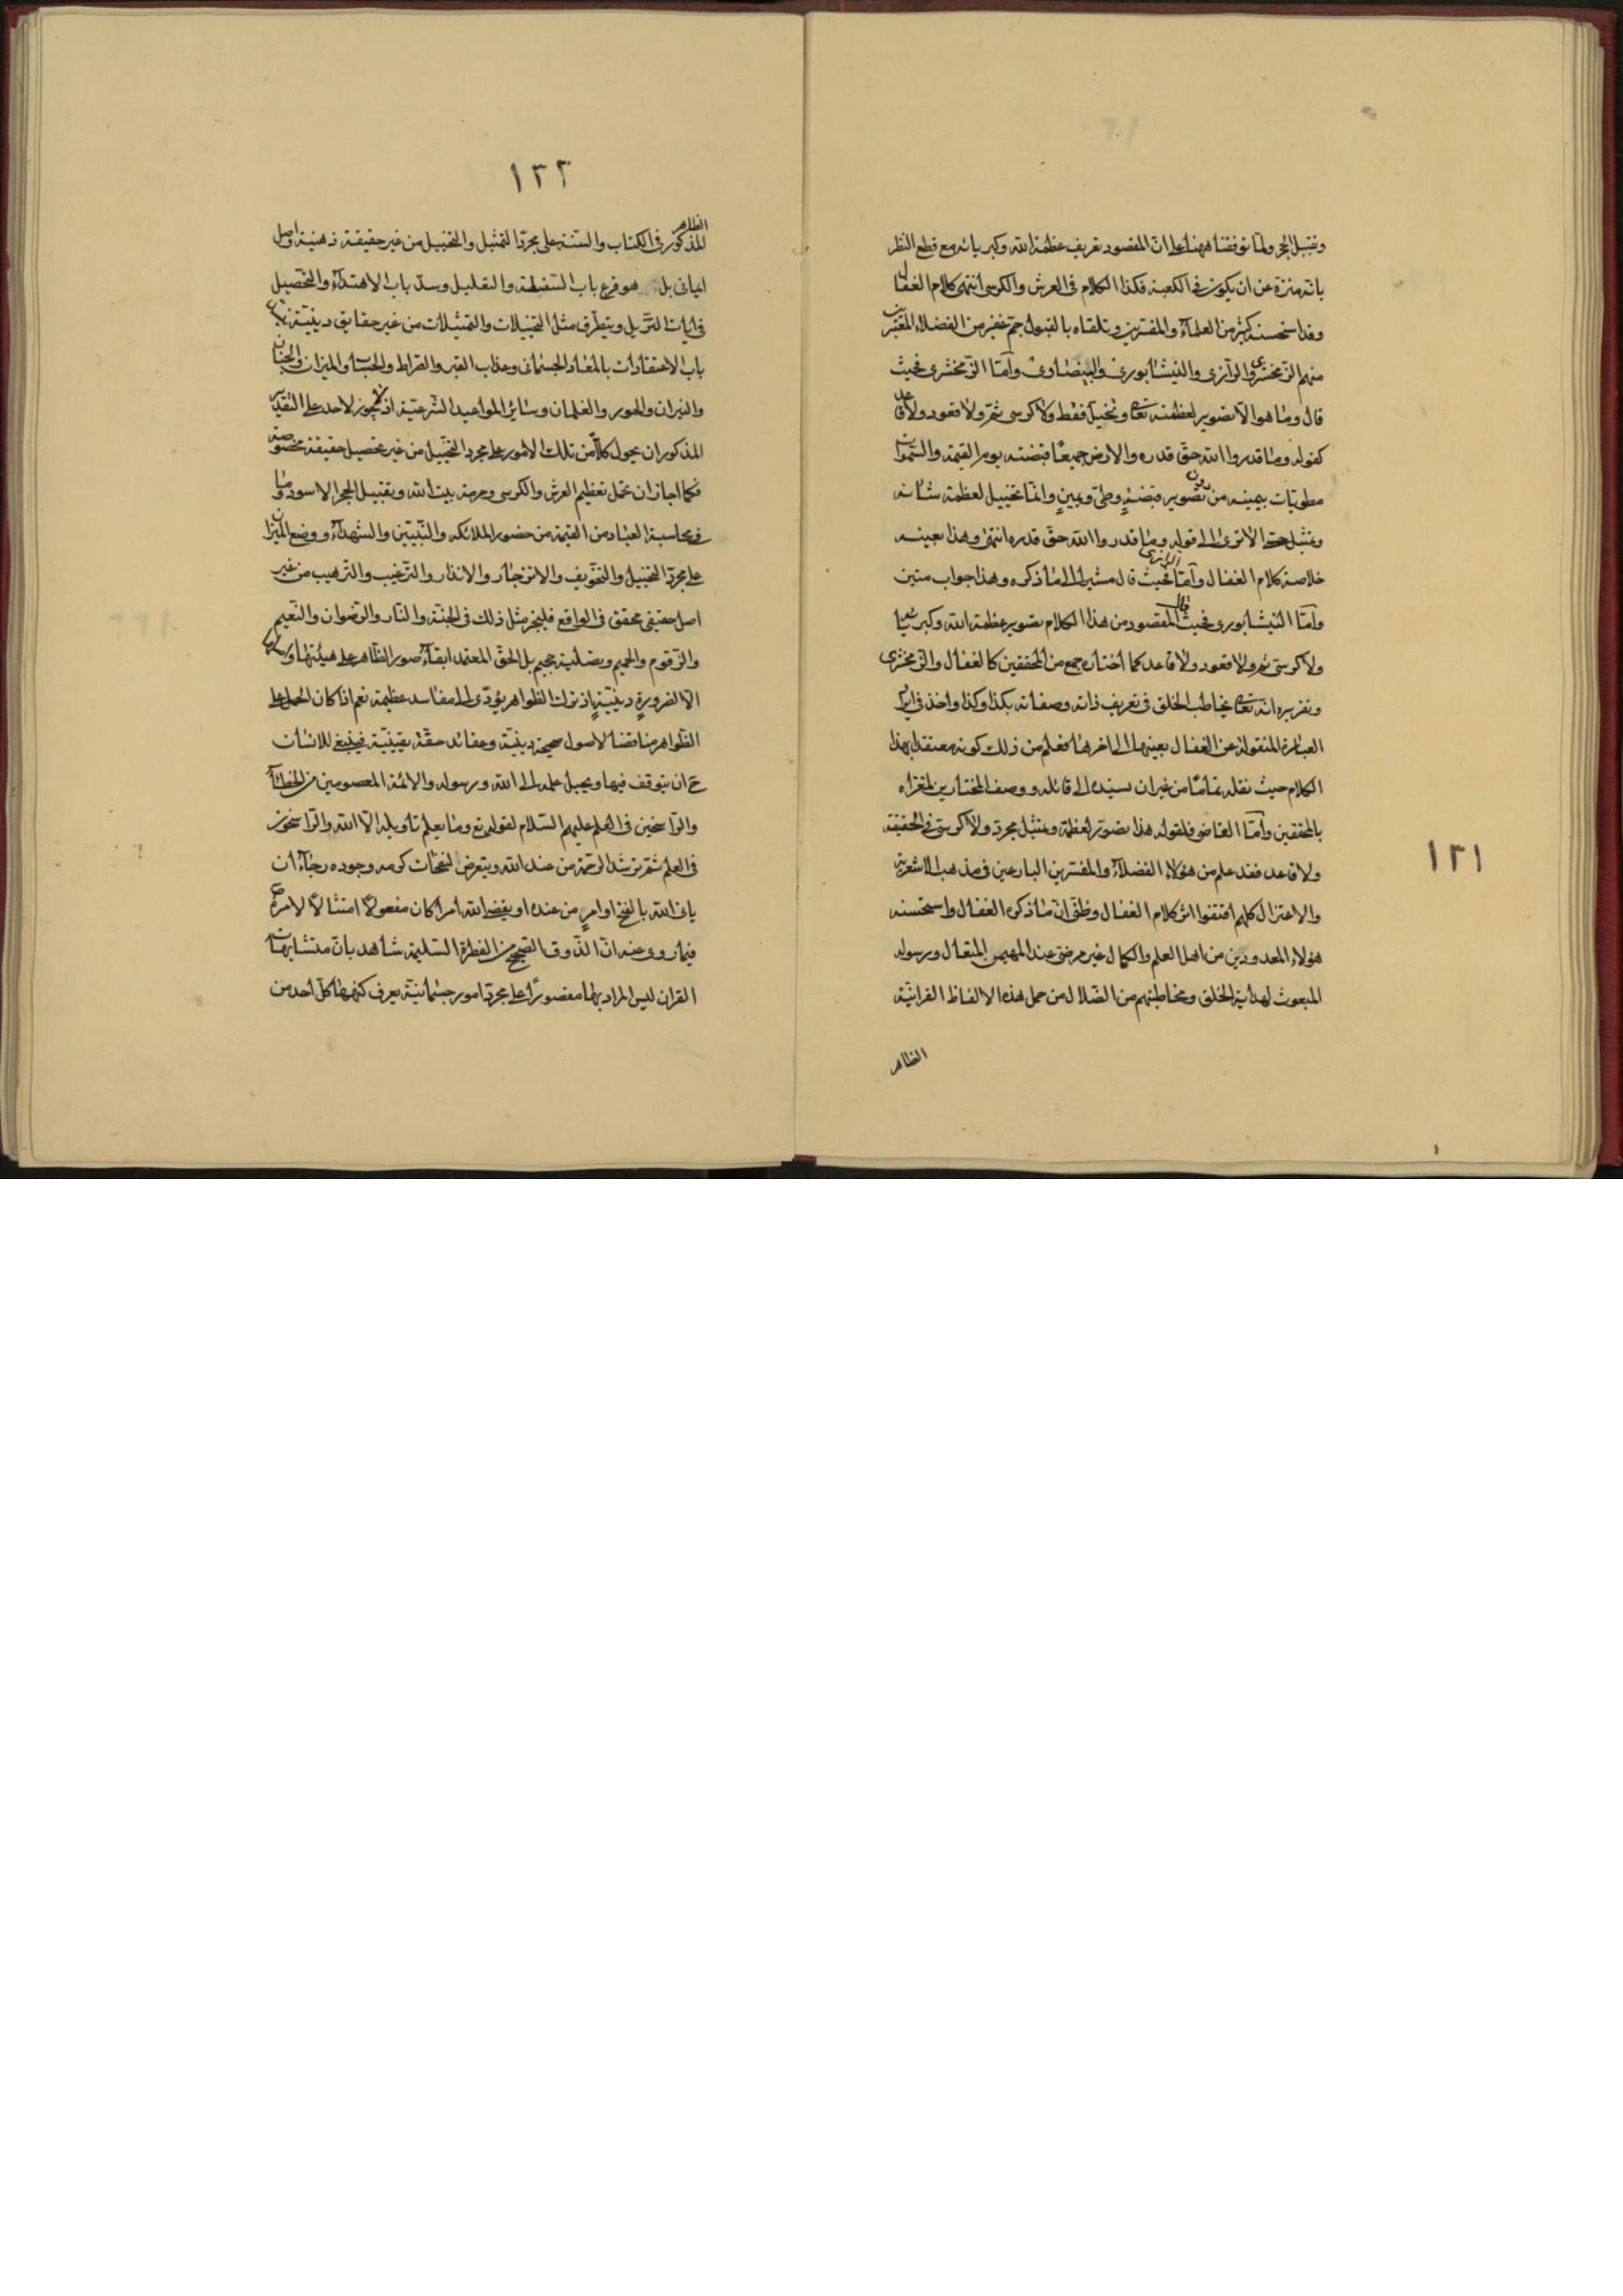 ١٢١
وتقبيل الحجر ولما توقفنا ههنا على ان المقصود تعريف عظمة الله وكبريائه مع قطع النظر
بانه منزه عن ان يكون في الكعبة فكذا الكلام في العرش والكرسي انتهى كلام القفال
وقد استحسنه كثير من العلماء والمفسرين وتلقاه بالقبول جم غفير من الفضلاء المعتبرين
منهم الزمخشري والرازي والنيشابوري والبيضاوي وأما الزمخشري فحيث
قال وما هو الا تصوير لعظمته تعالى وتخييل فقط ولا كرسي ثم ولا قعود ولا قاعد
كقوله وما قدروا الله حق قدره والارض جميعا قبضته يوم القيمة والسموات
مطويات بيمينه من دون تصوير قبضة وطي ويمين وانما تخييل لعظمة شانه
وتمثيل حسي الا ترى الى قوله وما قدروا الله حق قدره انتهى وهذا بعينه
خلاصة كلام القفال وأما الرازي فحيث قال مشيرا الى ما ذكره وهذا جواب متين
وأما النيشابوري فحيث قال المقصود من هذا الكلام تصوير عظمة الله وكبريائه
ولا كرسي ثم ولا قعود ولا قاعد كما اختاره جمع من المحققين كالقفال والزمخشري
وتقريره انه تعالى يخاطب الخلق في تعريف ذاته وصفاته بكذا وكذا واخذ في ايراد
العبارة المنقولة عن القفال بعينها الى اخرها فعلم من ذلك كونه معتقدا بهذا
الكلام حيث نقله تماما من غير ان يسنده الى قائله ووصف المختارين لمغزاه
بالمحققين وأما القاضي فلقوله هذا تصوير لعظمة وتمثيل مجرد ولا كرسي في الحقيقة
ولا قاعد فقد علم من هؤلاء الفضلاء والمفسرين البارعين في مذهب الاشعرية
والاعتزال كلهم اقتفوا اثر كلام القفال وظني ان ما ذكره القفال واستحسنه
هؤلاء المعدودين من اهل العلم والكمال غير مرضي عند المهيمن المتعال ورسوله
المبعوث لهداية الخلق ومخاطبتهم من الضلال من حمل هذه الالفاظ القرانية
الظاهر
١٢٢
الظاهر
المذكور في الكتاب والسنة على مجرد التمثيل والتخييل من غير حقيقة ذهنية واصل
ايماني بل هو قرع باب السفسطة والتعليل وسد باب الاهتداء والتحصيل
في ايات التنزيل ويتطرق مثل التخييلات والتمثيلات من غير حقايق دينية
باب الاعتقادات بالمعاد الجسماني وعذاب القبر والصراط والحساب والميزان والجنان
والنيران والحور والغلمان وسائر المواعيد الشرعية اذ لا يجوز لاحد على التقدير
المذكور ان يحول كلا من تلك الامور على مجرد التخييل من غير تحصيل حقيقة مخصوصة
فكما اجاز ان تحمل تعظيم العرش والكرسي وحرمة بيت الله وتقبيل الحجر الاسود وما
في محاسبة العباد من القيمة من حضور الملائكه والنبيين والشهداء ووضع الميزان
على مجرد التخييل والتخويف والانزجار والانذار والترغيب والترهيب من غير
اصل حقيقي محقق في الواقع فليجز مثل ذلك في الجنة والنار والرضوان والنعيم
والزقوم والحميم وتصلية جحيم بل الحق المعتمد ابقاء صور الظاهر على هيئتها
الا لضرورة دينية اذ ترك الظواهر يؤدي الى مفاسد عظيمة نعم اذا كان الحمل على
الظواهر مناقضا لاصول صحيحة دينية وعقائد حقة يقينية فينبغي للانسان
ح ان يتوقف فيها ويحيل علمه الى الله ورسوله والائمة المعصومين من الخطاء
والراسخين في العلم عليهم السلام لقوله تع وما يعلم تاويله الا الله والراسخون
في العلم ثم ترشد الرحمة من عند الله ويتعرض لنفحات كرمه وجوده رجاء ان
ياتي الله بالفتح او امر من عنده او يقضي الله امرا كان مفعولا امتثالا لامره ص
فيما روى عنه ان الذوق الصحيح من الفطرة السليمة شاهد بان متشابهات
القران ليس المراد بها مقصورا على مجرد امور جسمانية يعرف كنهها كل احد من